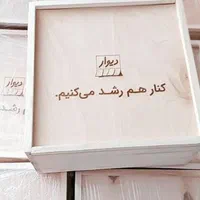 دیوار
کنار هم رشد می‌کنیم.